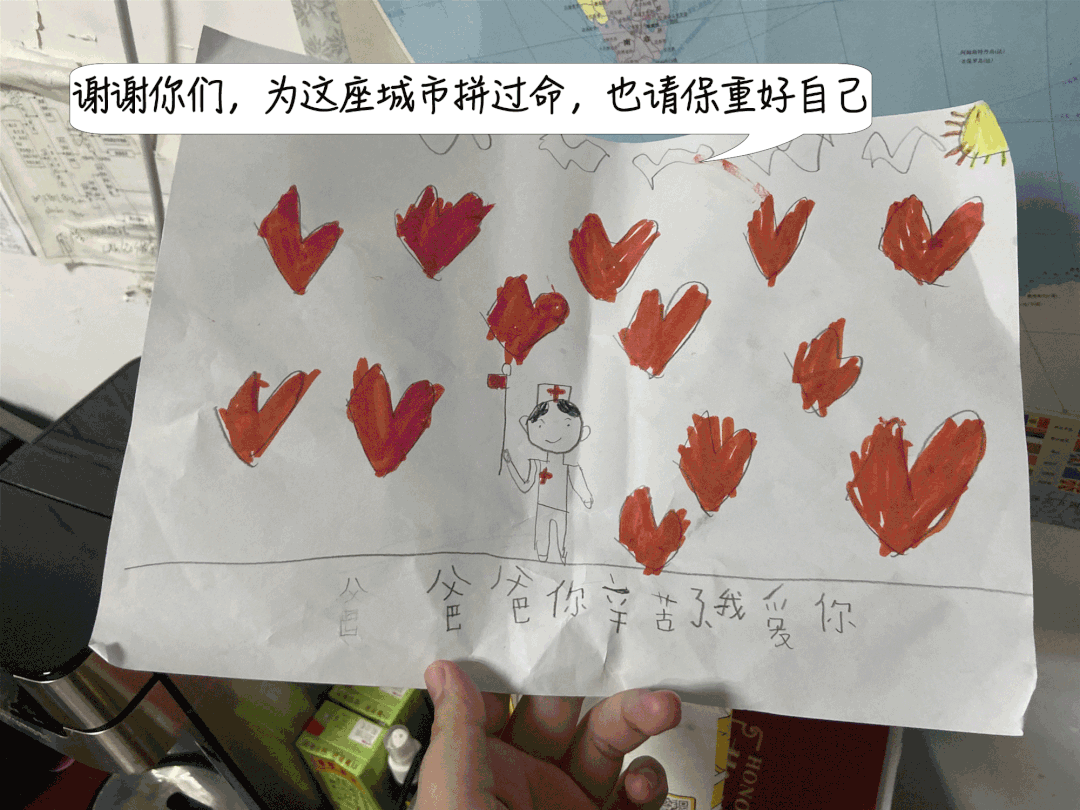 谢谢你们，为这座城市拼过命，也请保重好自己
爸 爸爸你辛苦了我爱你
HONO